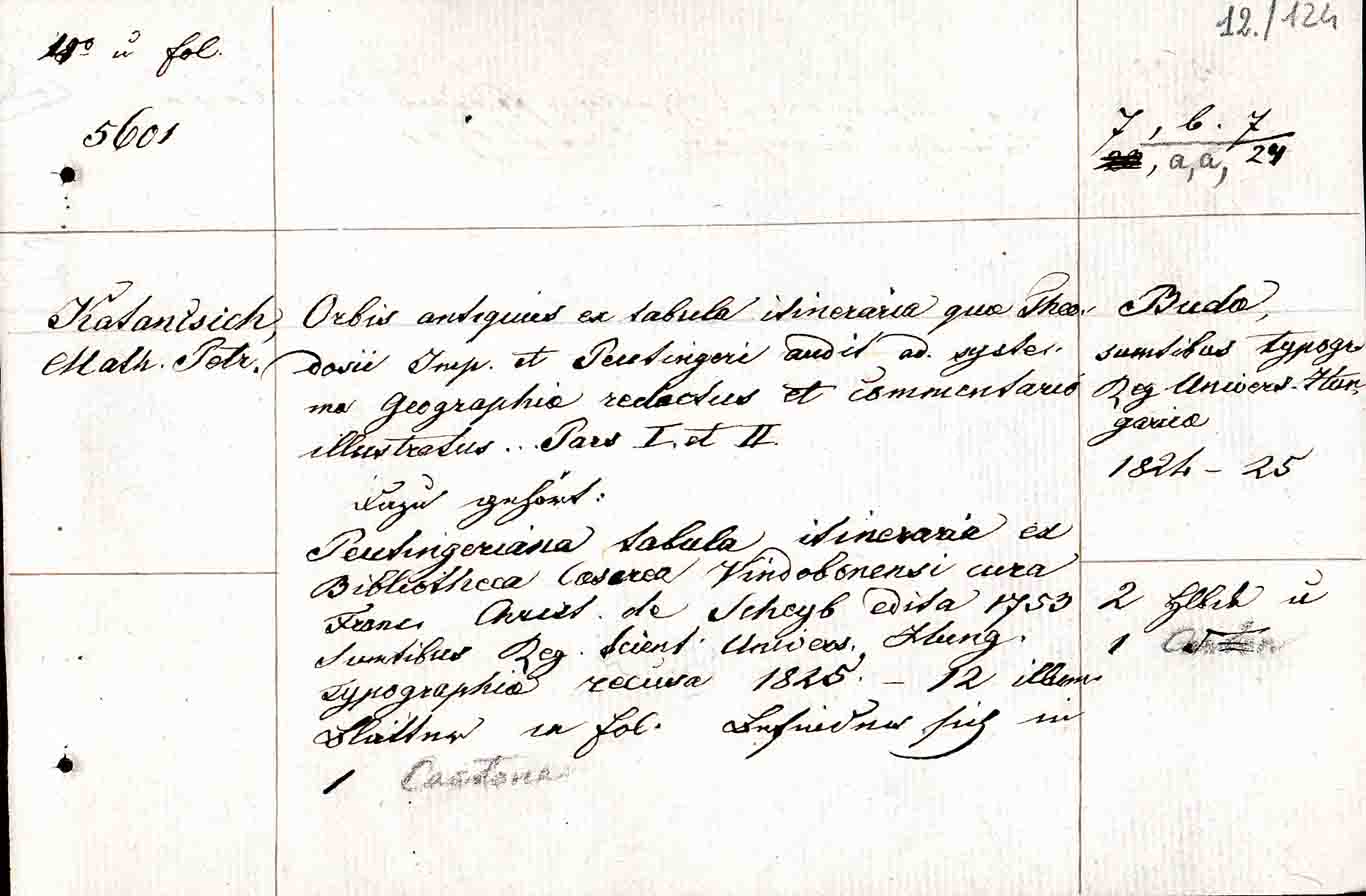 12./124
4° u fol.
5601
7, b. 7
, a, a, 24
Katantsich,
Math. Petr.
Orbis antiquus ex tabula itineraria quæ Theo-
dosii Imp. et Peutingeri audit ad syste-
ma Geographiæ redactus et commentario
illustratus .. Pars I. et II.
Dazu gehört:
Peutingeriana tabula itineraria ex
Bibliotheca Cæsarea Vindobonensi cura
Franc. Christ. de Scheyb edita 1753
Sumtibus Reg. Scient. Univers. Hung.
typographiæ recusa 1825. – 12 illum.
Blätter in fol. befinden sich in
1 Cartone
Budæ,
sumtibus typogr.
Reg. Univers. Hun-
garicæ
1824 – 25
2 Hlbd u
1